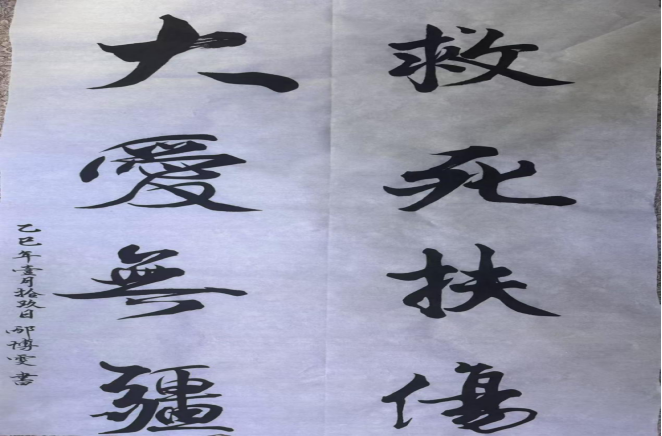 救死扶傷
大愛無疆
乙巳年壹月拾玖日 邴博雯 書